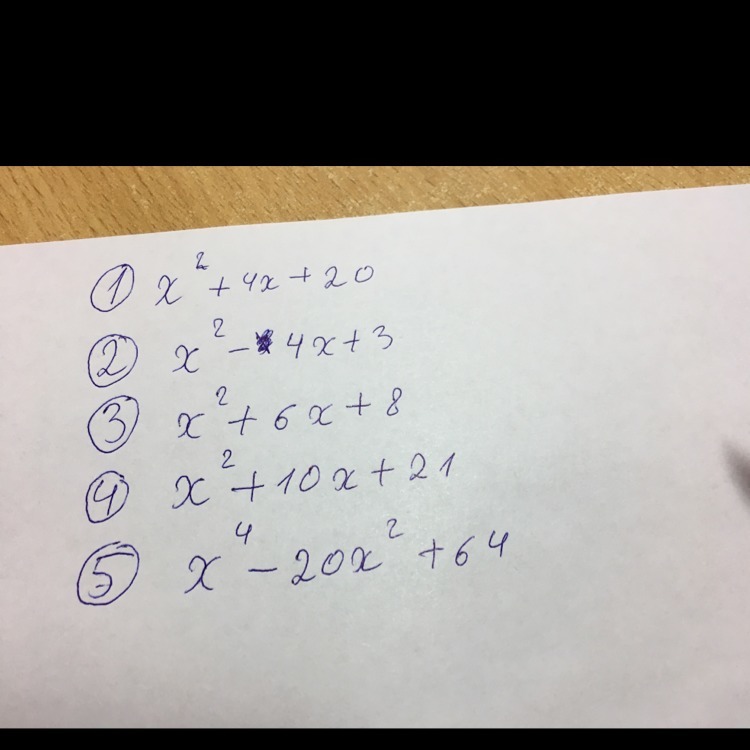 ① x² + 4x + 20
② x² - 4x + 3
③ x² + 6x + 8
④ x² + 10x + 21
⑤ x⁴ - 20x² + 64